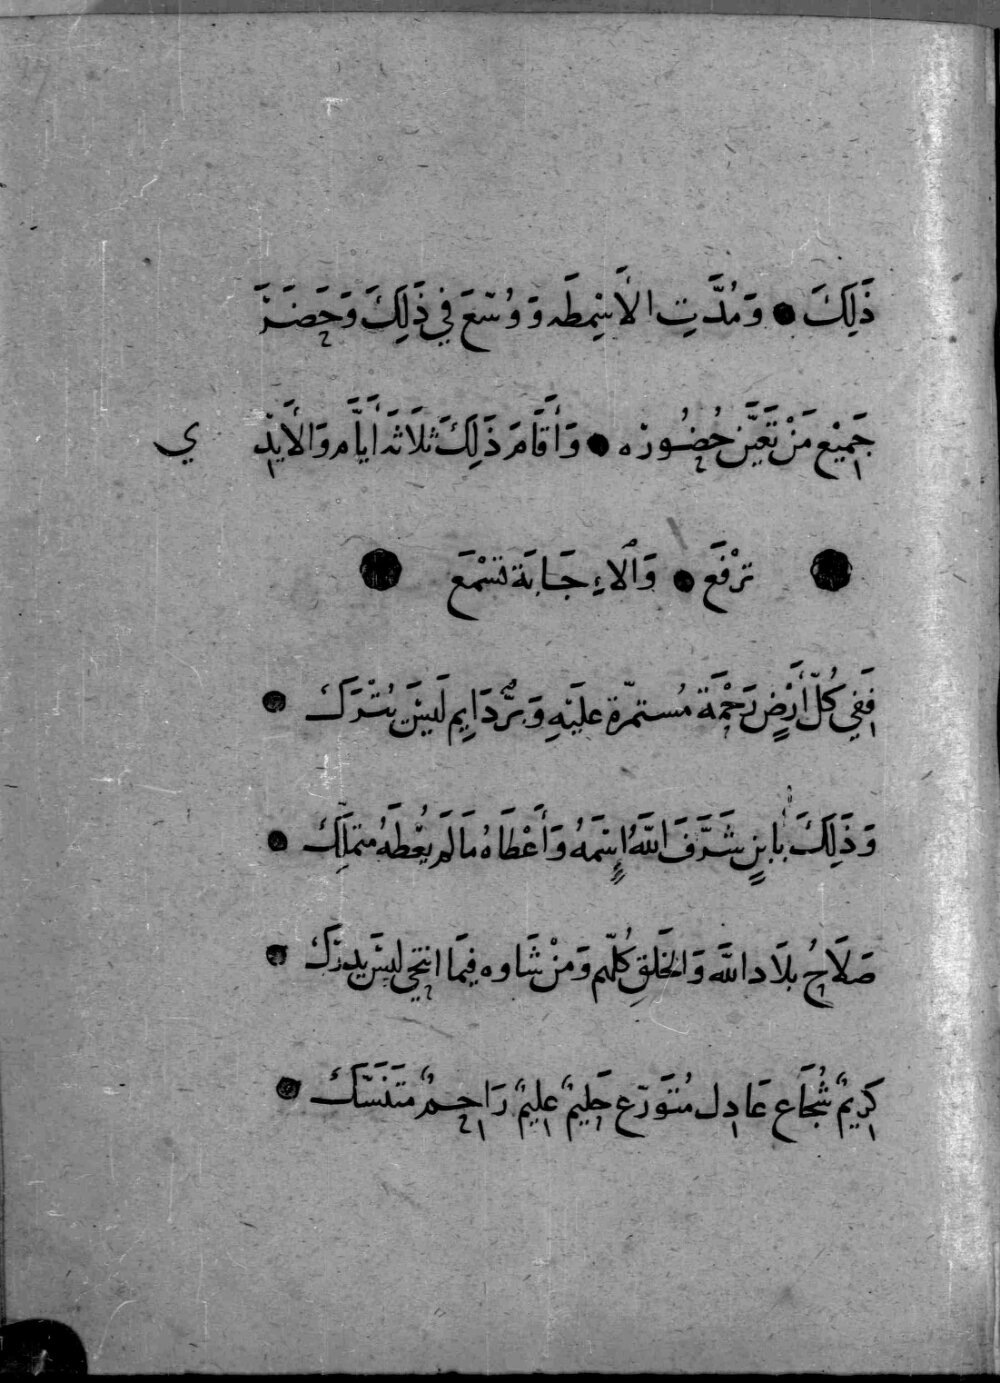 ذَلِكَ ● وَمُدَّتِ الأَسْمِطَه وَوُسِّعَ فِي ذَلِكَ وَحَضَرَ
جَمِيْع مَنْ تَعَيَّن حُضُوره ● وَأَقَامَ ذَلِكَ ثَلَاثَه أَيَّام وَالأَيْدِي
ترْفَع ● وَالإِجَابَة تَسْمَع
فَفِي كُلّ أَرْضٍ رَحْمَة مُستمرّة عليْهِ وَبِرٌّ دَايِم لَيسَ يُتْرَك
وَذَلِكَ بابنٍ شَرَّفَ اللَّهُ اسْمَهُ وَأَعْطَاهُ مَا لَم يُعْطَهُ متملِّك
صَلَاحُ بلَاد اللَّه وَالخَلقِ كُلّهم وَمنْ شَاوه فِيمَا انتحى ليسَ يدرَك
كَرِيمٌ شُجَاع عَادِل مُتَوَرّع حَلِيمٌ عليمٌ رَاحِمٌ مُتَنَسِّك